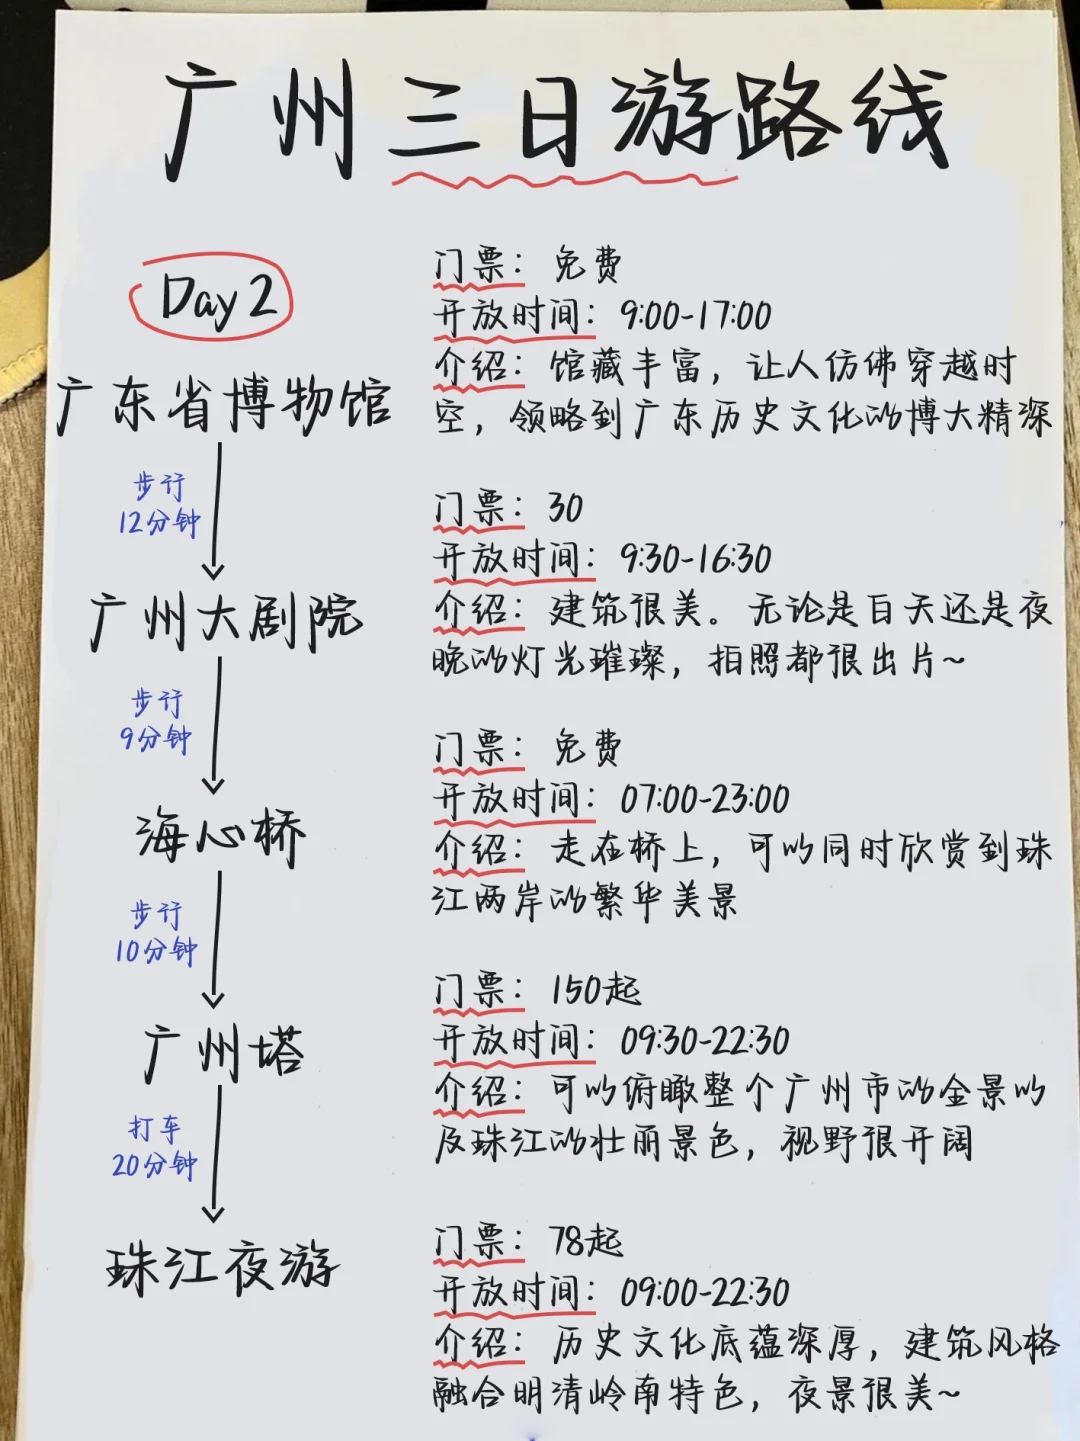 广州三日游路线
Day 2
广东省博物馆
门票：免费
开放时间：9:00-17:00
介绍：馆藏丰富，让人仿佛穿越时
空，领略到广东历史文化的博大精深
步行
12分钟
广州大剧院
门票：30
开放时间：9:30-16:30
介绍：建筑很美。无论是白天还是夜
晚的灯光璀璨，拍照都很出片~
步行
9分钟
海心桥
门票：免费
开放时间：07:00-23:00
介绍：走在桥上，可以同时欣赏到珠
江两岸的繁华美景
步行
10分钟
广州塔
门票：150起
开放时间：09:30-22:30
介绍：可以俯瞰整个广州市的全景以
及珠江的壮丽景色，视野很开阔
打车
20分钟
珠江夜游
门票：78起
开放时间：09:00-22:30
介绍：历史文化底蕴深厚，建筑风格
融合明清岭南特色，夜景很美~